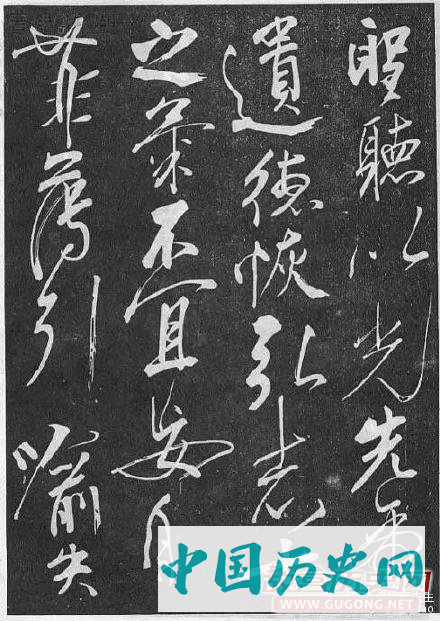 聖聽以光先帝
遺德恢弘志士
之氣不宜妄自
菲薄引喻失
中国历史网
WWW.GUGONG.NET